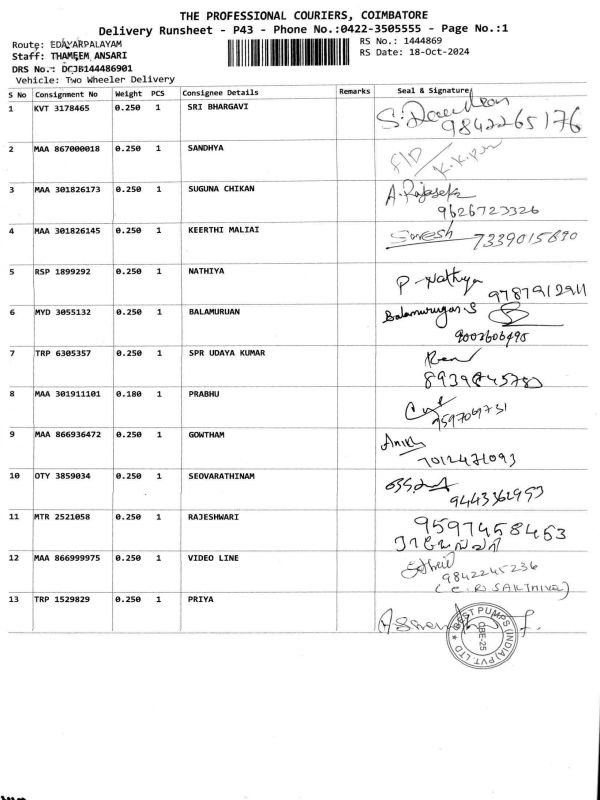 THE PROFESSIONAL COURIERS, COIMBATORE
Delivery Runsheet - P43 - Phone No.:0422-3505555 - Page No.:1
Route: EDAYARPALAYAM
RS No.: 1444869
Staff: THAMEEM ANSARI
RS Date: 18-Oct-2024
DRS No.: DCJB144486901
Vehicle: Two Wheeler Delivery
S No Consignment No Weight PCS Consignee Details Remarks Seal & Signature
1 KVT 3178465 0.250 1 SRI BHARGAVI
9842265176
2 MAA 867000018 0.250 1 SANDHYA
F/D
3 MAA 301826173 0.250 1 SUGUNA CHIKAN A.Rajasek
9626723326
4 MAA 301826145 0.250 1 KEERTHI MALIAI Suresh 7339015690
5 RSP 1899292 0.250 1 NATHIYA P-Nathiya
9787912911
6 MYD 3055132 0.250 1 BALAMURUAN Balamurugan S
9003606495
7 TRP 6305357 0.250 1 SPR UDAYA KUMAR
8939845780
8 MAA 301911101 0.180 1 PRABHU
9597069731
9 MAA 866936472 0.250 1 GOWTHAM
7012471093
10 OTY 3859034 0.250 1 SEOVARATHINAM
9443362953
11 MTR 2521058 0.250 1 RAJESHWARI 9597458463
12 MAA 866999975 0.250 1 VIDEO LINE
9842245236
(C.R SAKTHIVEL)
13 TRP 1529829 0.250 1 PRIYA
BEST PUMPS (INDIA) PVT. LTD
CBE-25